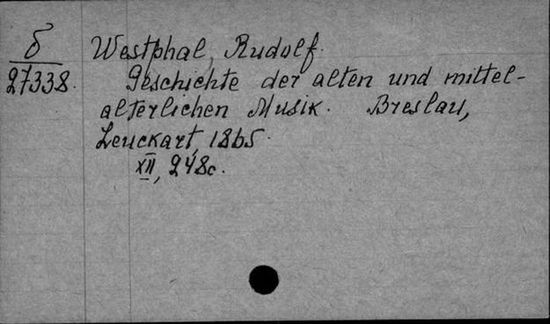 б
27338.
Westphal, Rudolf.
Geschichte der alten und mittel-
alterlichen Musik. Breslau,
Leuckart, 1865.
XII, 248c.